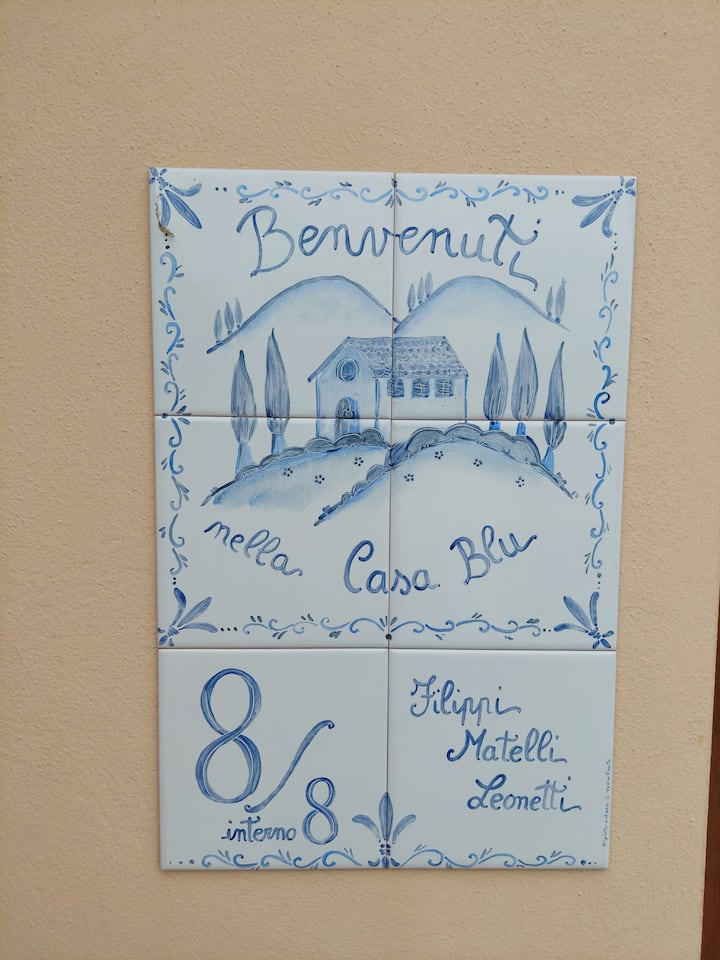 Benvenuti
nella Casa Blu
8/
interno 8
Filippi
Matelli
Leonetti